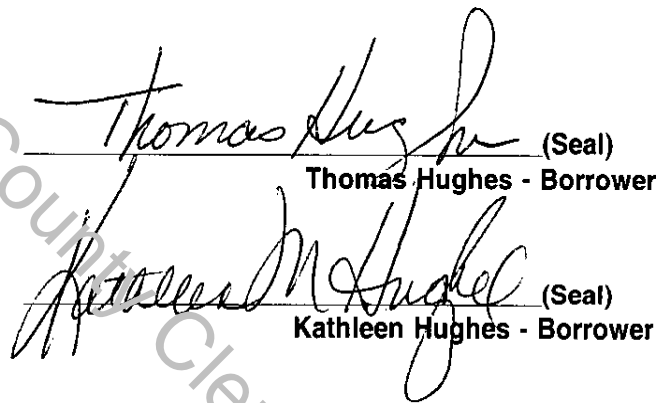 Thomas Hughes (Seal)
Thomas Hughes - Borrower
Kathleen M Hughes (Seal)
Kathleen Hughes - Borrower
County Clerk